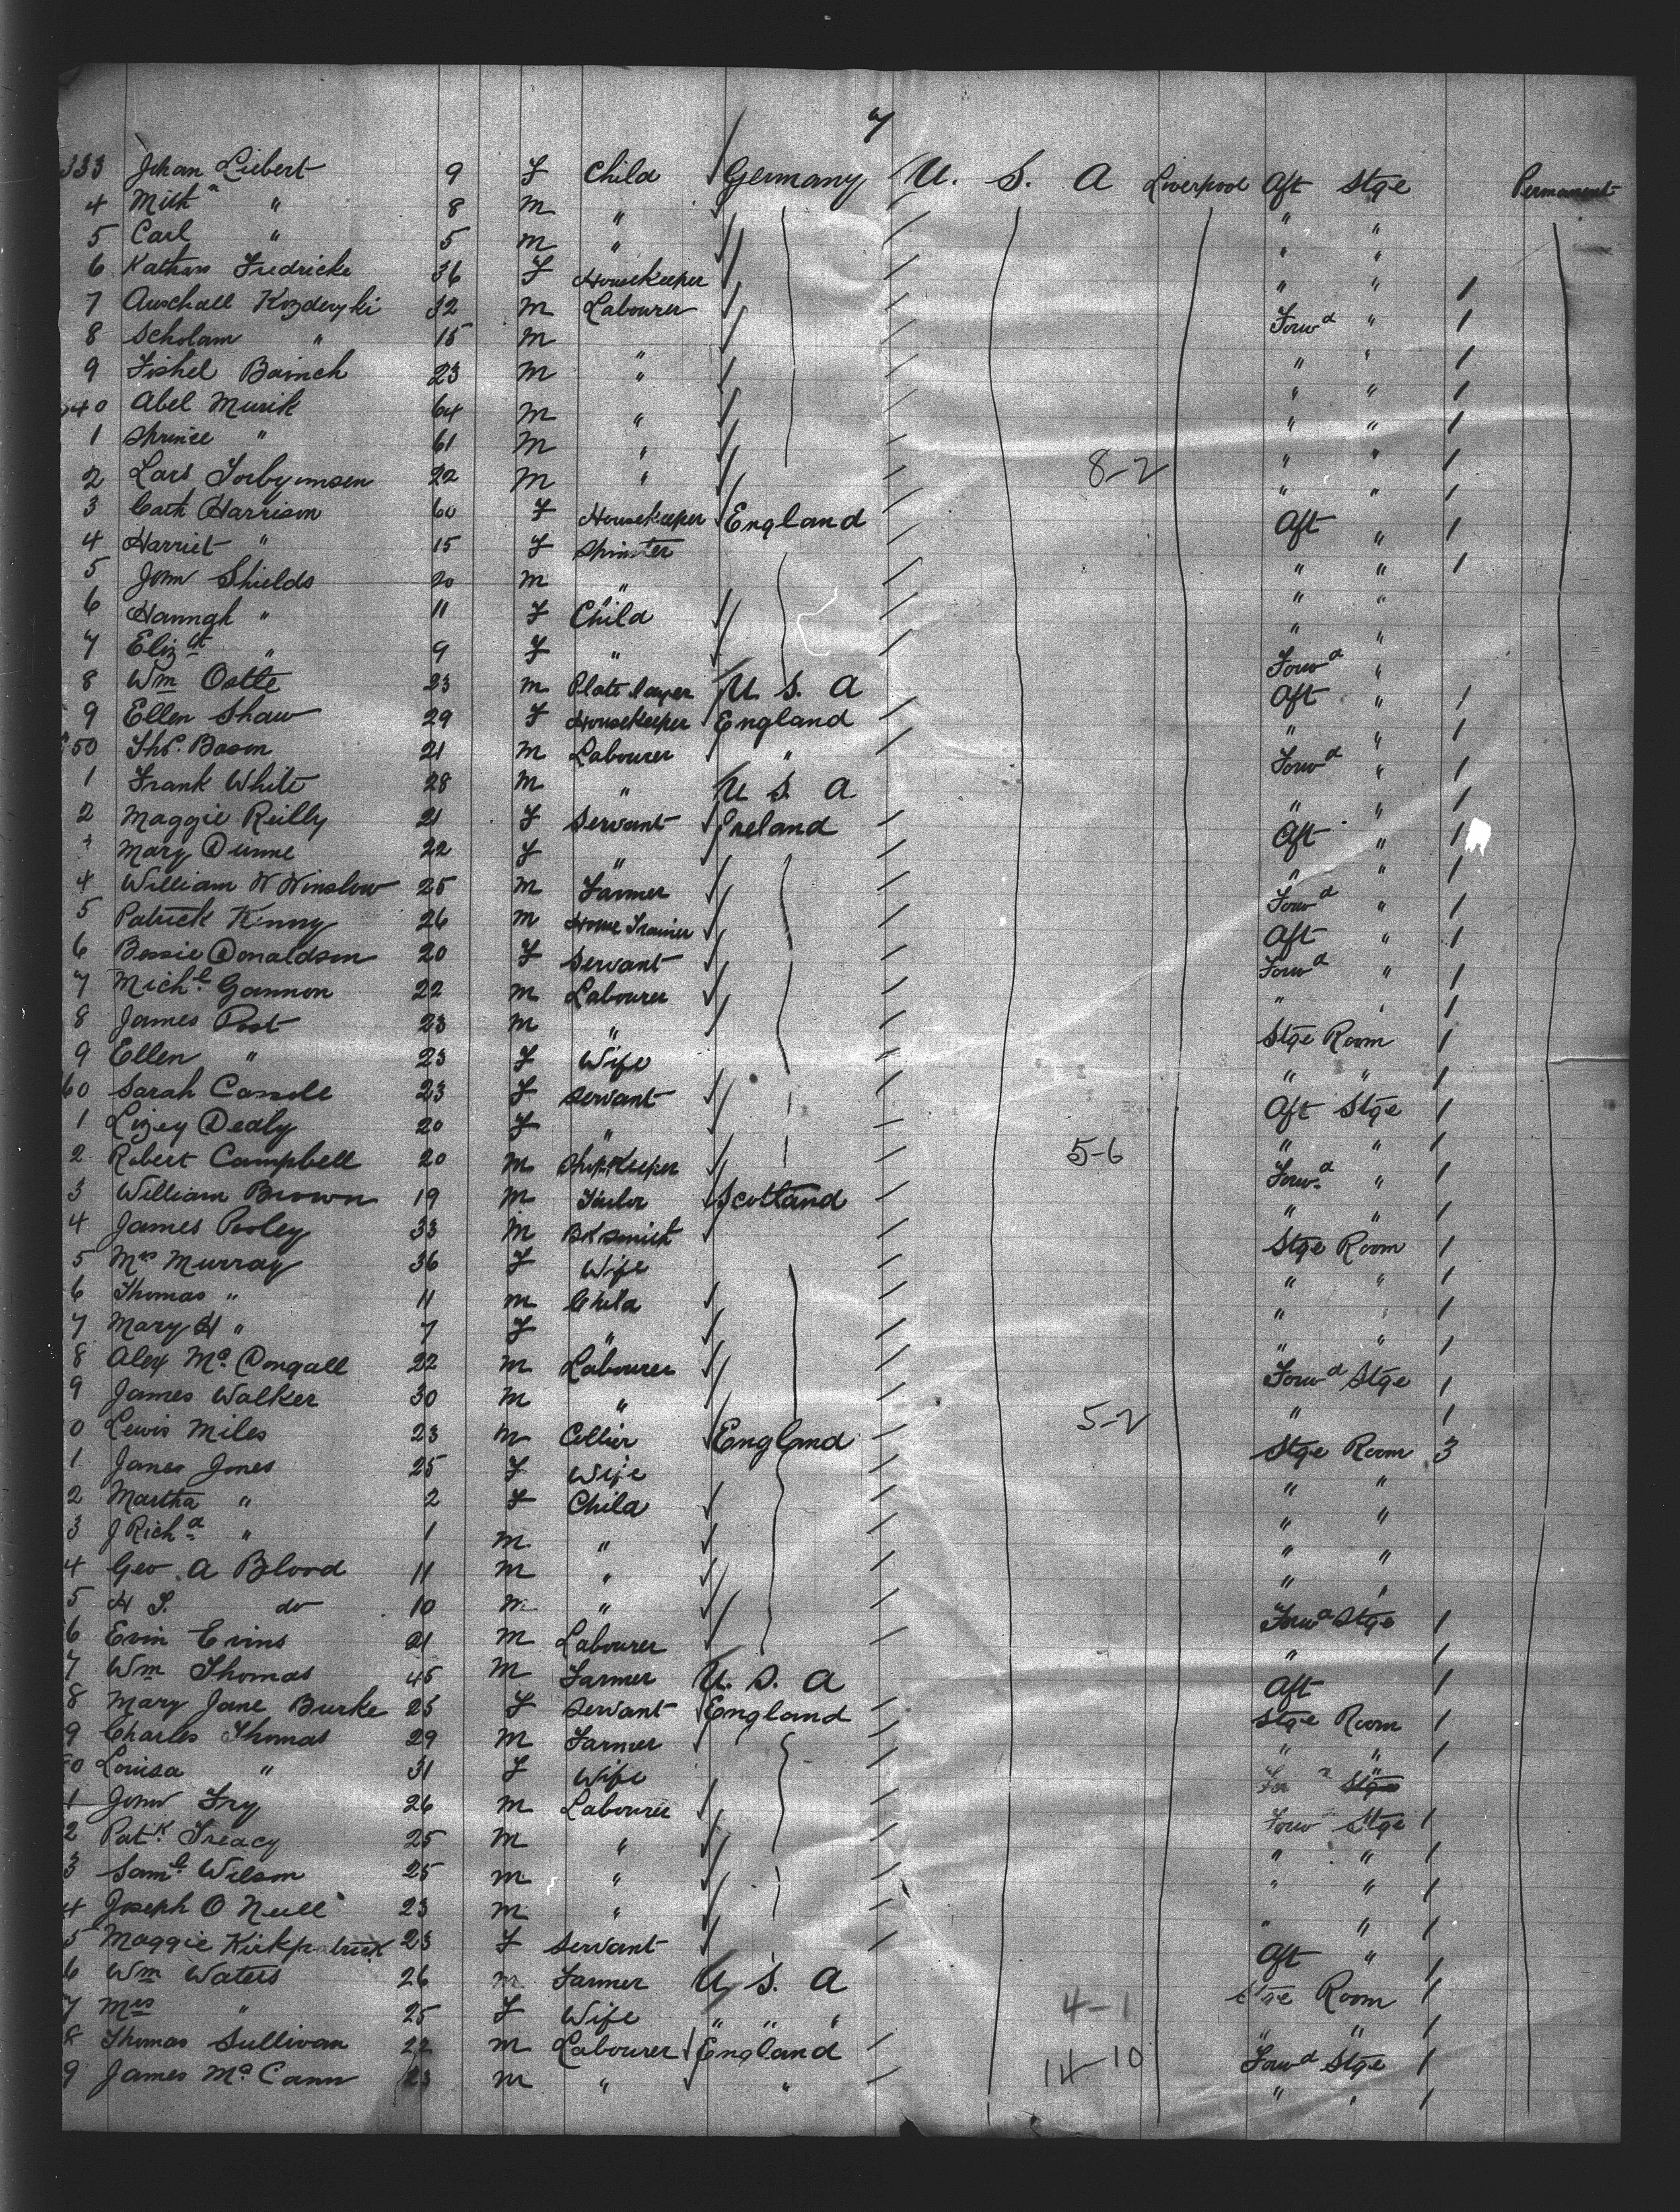 7
333 Johan Liebert 9 F Child Germany U. S. A Liverpool Aft Stge Permanent
4 " 8 M " " "
5 Carl " 5 M " " "
6 Fredricke 36 F Housekeeper " " 1
7 32 M Labourer Forwd " 1
8 Scholam " 15 M " " " 1
9 Fishel 23 M " " " 1
340 Abel Murik 64 M " " " 1
1 " 61 M " " " 1
2 Lars 22 M " " " 1
3 Cath Harrison 60 F Housekeeper England Aft " 1
4 Harriet " 15 F Spinster " " 1
5 John Shields 20 M " " "
6 Hannah " 11 F Child " "
7 Elizth " 9 F " Forwd "
8 Wm Ostle 23 M Plate layer U S. A Aft " 1
9 Ellen Shaw 29 F Housekeeper England " " 1
350 Thos. Bason 21 M Labourer " Forwd " 1
1 Frank White 28 M " U S. A " " 1
2 Maggie Reilly 21 F Servant Ireland Aft " 1
3 Mary Dunne 22 F " " " 1
4 William W Winslow 25 M Farmer Forwd " 1
5 Patrick Kenny 26 M Horse Trainer Aft " 1
6 Bessie Donaldson 20 F Servant Forwd " 1
7 Michl Gannon 22 M Labourer " " 1
8 James Post 23 M " Stge Room 1
9 Ellen " 23 F Wife " " 1
60 Sarah 23 F Servant Aft Stge 1
1 Lizey Dealy 20 F " " " 1
2 Robert Campbell 20 M Shopkeeper 5-6 Forwd " 1
3 William Brown 19 M Tailor Scotland " " 1
4 James Pooley 33 M Bksmith Stge Room 1
5 Mrs Murray 36 F Wife " " 1
6 Thomas " 11 M Child " " 1
7 Mary H " 7 F " " " 1
8 Alex Mc Dougall 22 M Labourer Forwd Stge 1
9 James Walker 30 M " " 1
0 Lewis Miles 23 M Collier England 5-2 Stge Room 3
1 James Jones 25 F Wife " "
2 Martha " 2 F Child " "
3 J Richd " 1 M " " "
4 Geo A Blood 11 M " " "
5 H S. do 10 M " Forwd Stge 1
6 Evin Evins 21 M Labourer " 1
7 Wm Thomas 45 M Farmer U. S. A Aft 1
8 Mary Jane Burke 25 F Servant England Stge Room 1
9 Charles Thomas 29 M Farmer " " 1
80 Louisa " 31 F Wife Stge
1 John Fry 26 M Labourer Forw Stge 1
2 Patk Treacy 25 M " " " 1
3 Saml Wilson 25 M " " " 1
4 Joseph O Neill 23 M " " " 1
5 Maggie Kirkpatrick 23 F Servant Aft " 1
6 Wm Waters 26 M Farmer U S. A Stge Room 1
7 Mrs " 25 F Wife " " " 4-1 " " 1
8 Thomas Sullivan 22 M Labourer England 14-10 Forwd Stge 1
9 James Mc Cann 23 M " " " " 1